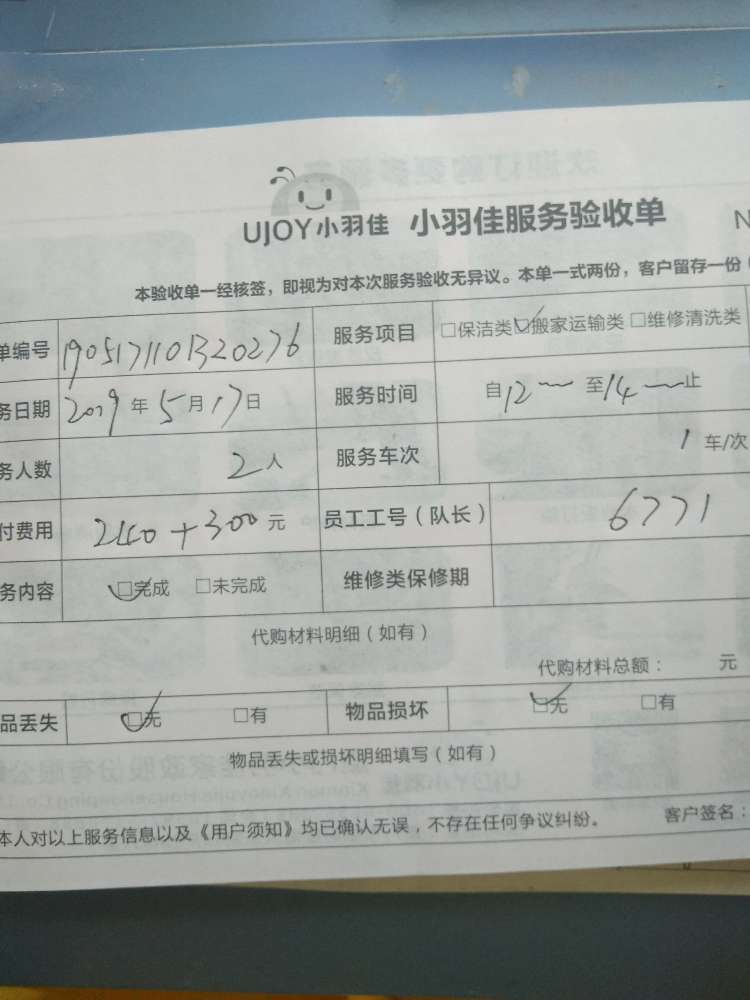 UJOY小羽佳 小羽佳服务验收单 N
本验收单一经核签，即视为对本次服务验收无异议。本单一式两份，客户留存一份
单编号 1905171101320276 服务项目 □保洁类☑搬家运输类□维修清洗类
务日期 2019年5月17日 服务时间 自12 至14 止
务人数 2人 服务车次 1车/次
付费用 240+300元 员工工号（队长） 6771
务内容 ☑完成 □未完成 维修类保修期
代购材料明细（如有）
代购材料总额： 元
品丢失 ☑无 □有 物品损坏 ☑无 □有
物品丢失或损坏明细填写（如有）
本人对以上服务信息以及《用户须知》均已确认无误，不存在任何争议纠纷。 客户签名：